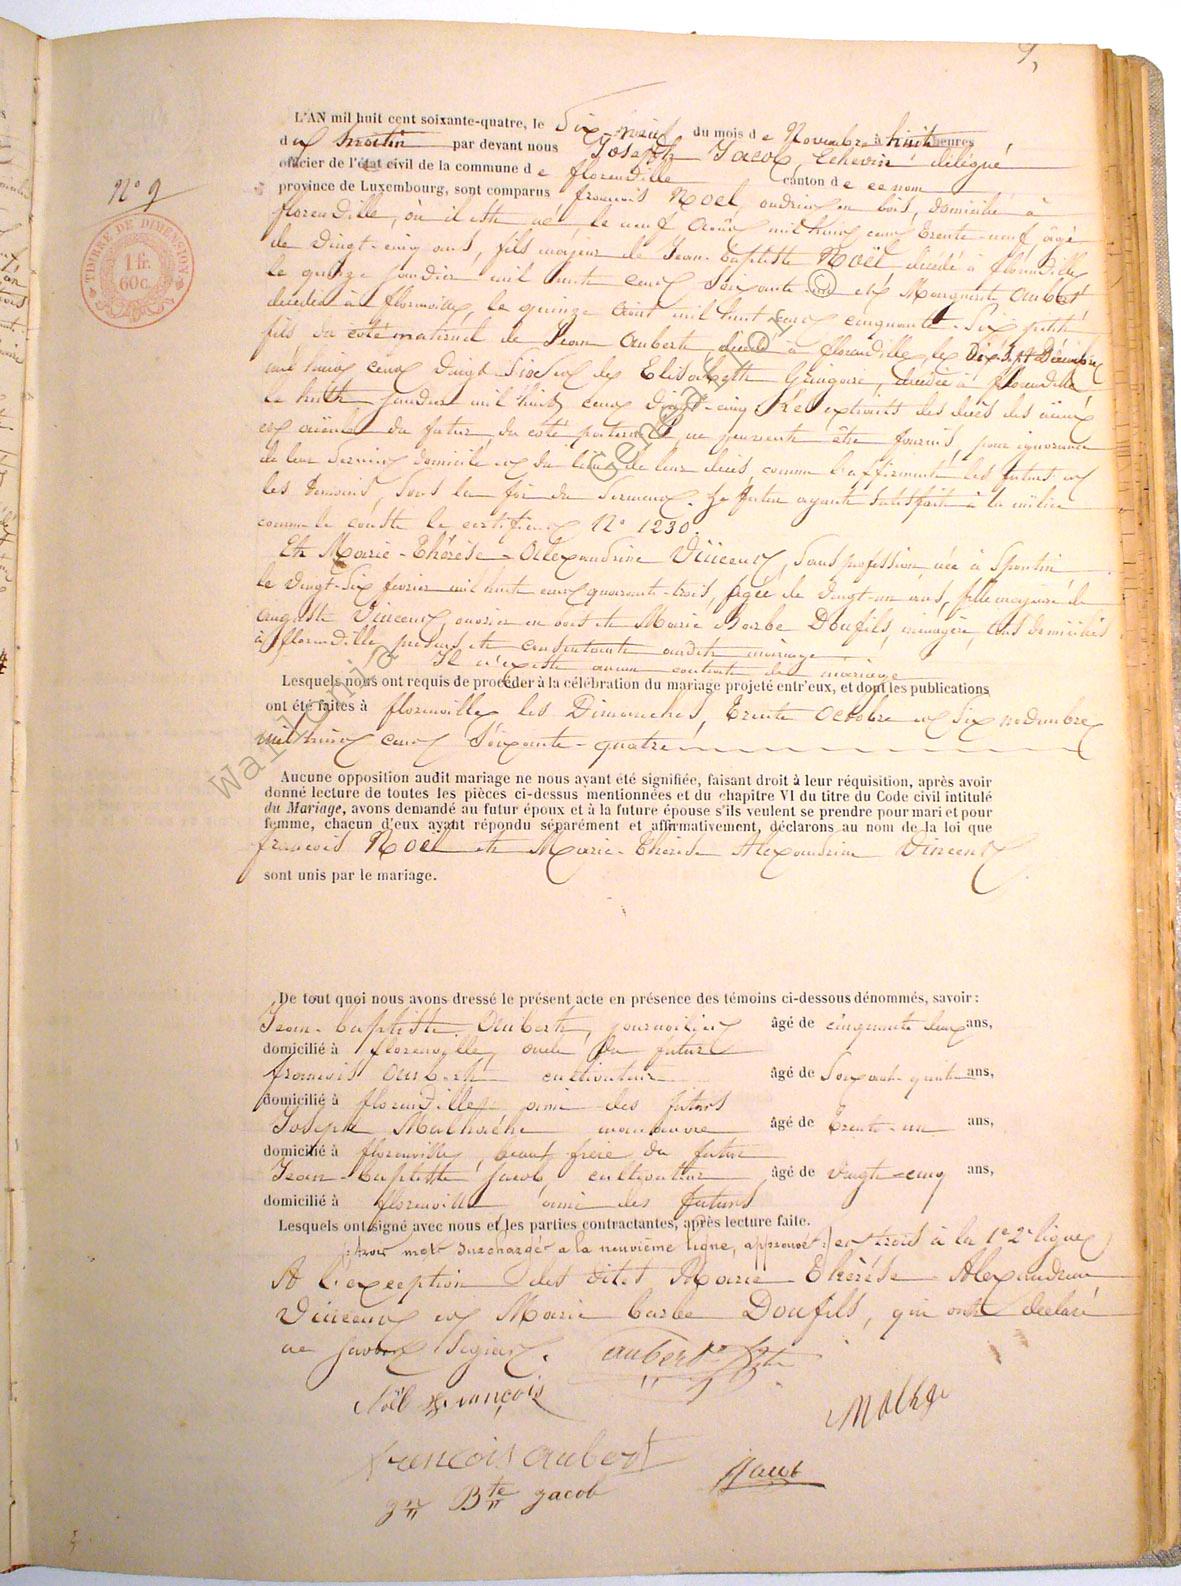 9,
L'AN mil huit cent soixante-quatre, le dix-neuf du mois de Novembre à huit heures
du matin par devant nous Joseph Jacob, Echevin délégué
officier de l'état civil de la commune de florenville canton de ce nom
province de Luxembourg, sont comparus françois Noël, ouvrier en bois, domicilié à
N° 9
TIMBRE DE DIMENSION
1 fr.
60 c.
florenville, où il est né, le neuf Août mil huit cent trente-neuf, âgé
de vingt-cinq ans, fils majeur de Jean-baptiste Noël, décédé à florenville
le quinze janvier mil huit cent soixante et Marguerite Aubert
décédée à florenville, le quinze Août mil huit cent cinquante-six, petit
fils du coté maternel de Jean Aubert, décédé à florenville, le Dix-Sept Décembre
mil huit cent vingt-six et de Elisabeth décédée à florenville
le huit janvier mil huit cent vingt-cinq. Les extraits des décès des aïeux
et aïeule du futur du coté paternel, ne peuvent être fournis, pour ignorance
de leur dernier domicile et du lieu de leur décès, comme l'affirment les futurs et
les témoins, sous la foi du serment. Le futur ayant satisfait à la milice
comme le conste le certificat N° 1230
Et Marie-Thérèse-Allexandrine Vincent, sans profession, née à Spontin
le vingt-six février mil huit cent quarante-trois, âgée de vingt-un ans, fille majeure de
Auguste Vincent, ouvrier en bois et Marie Barbe Doufils, ménagère, tous domiciliés
à florenville présents et consentants audit mariage
Il n'existe aucun contrat de mariage
Lesquels nous ont requis de procéder à la célébration du mariage projeté entr'eux, et dont les publications
ont été faites à florenville, les Dimanches, trente Octobre et six novembre
mil huit cent soixante-quatre
Aucune opposition audit mariage ne nous ayant été signifiée, faisant droit à leur réquisition, après avoir
donné lecture de toutes les pièces ci-dessus mentionnées et du chapitre VI du titre du Code civil intitulé
du Mariage, avons demandé au futur époux et à la future épouse s'ils veulent se prendre pour mari et pour
femme, chacun d'eux ayant répondu séparément et affirmativement, déclarons au nom de la loi que
francois Noël et Marie-Thérèse Alexandrine Vincent
sont unis par le mariage.
De tout quoi nous avons dressé le présent acte en présence des témoins ci-dessous dénommés, savoir :
Jean-baptiste Aubert, journalier âgé de cinquante deux ans,
domicilié à florenville, oncle du futur
françois Aubert cultivateur âgé de ans,
domicilié à florenville ami des futurs
Joseph manœuvre âgé de trente-un ans,
domicilié à florenville, beau-frère du futur
Jean-baptiste Jacob, cultivateur âgé de vingt-cinq ans,
domicilié à florenville ami des futurs
Lesquels ont signé avec nous et les parties contractantes, après lecture faite.
trois mots surchargés à la neuvième ligne, approuvés et trois à la 1e 2e ligne
A l'exception des dites Marie-Thérèse Alexandrine
Vincent et Marie barbe Doufils, qui ont déclaré
ne savoir signer.
Aubert
Noël François
francois aubert
Jn Bte jacob
Jacob
© Geneanet.org
Wallonia